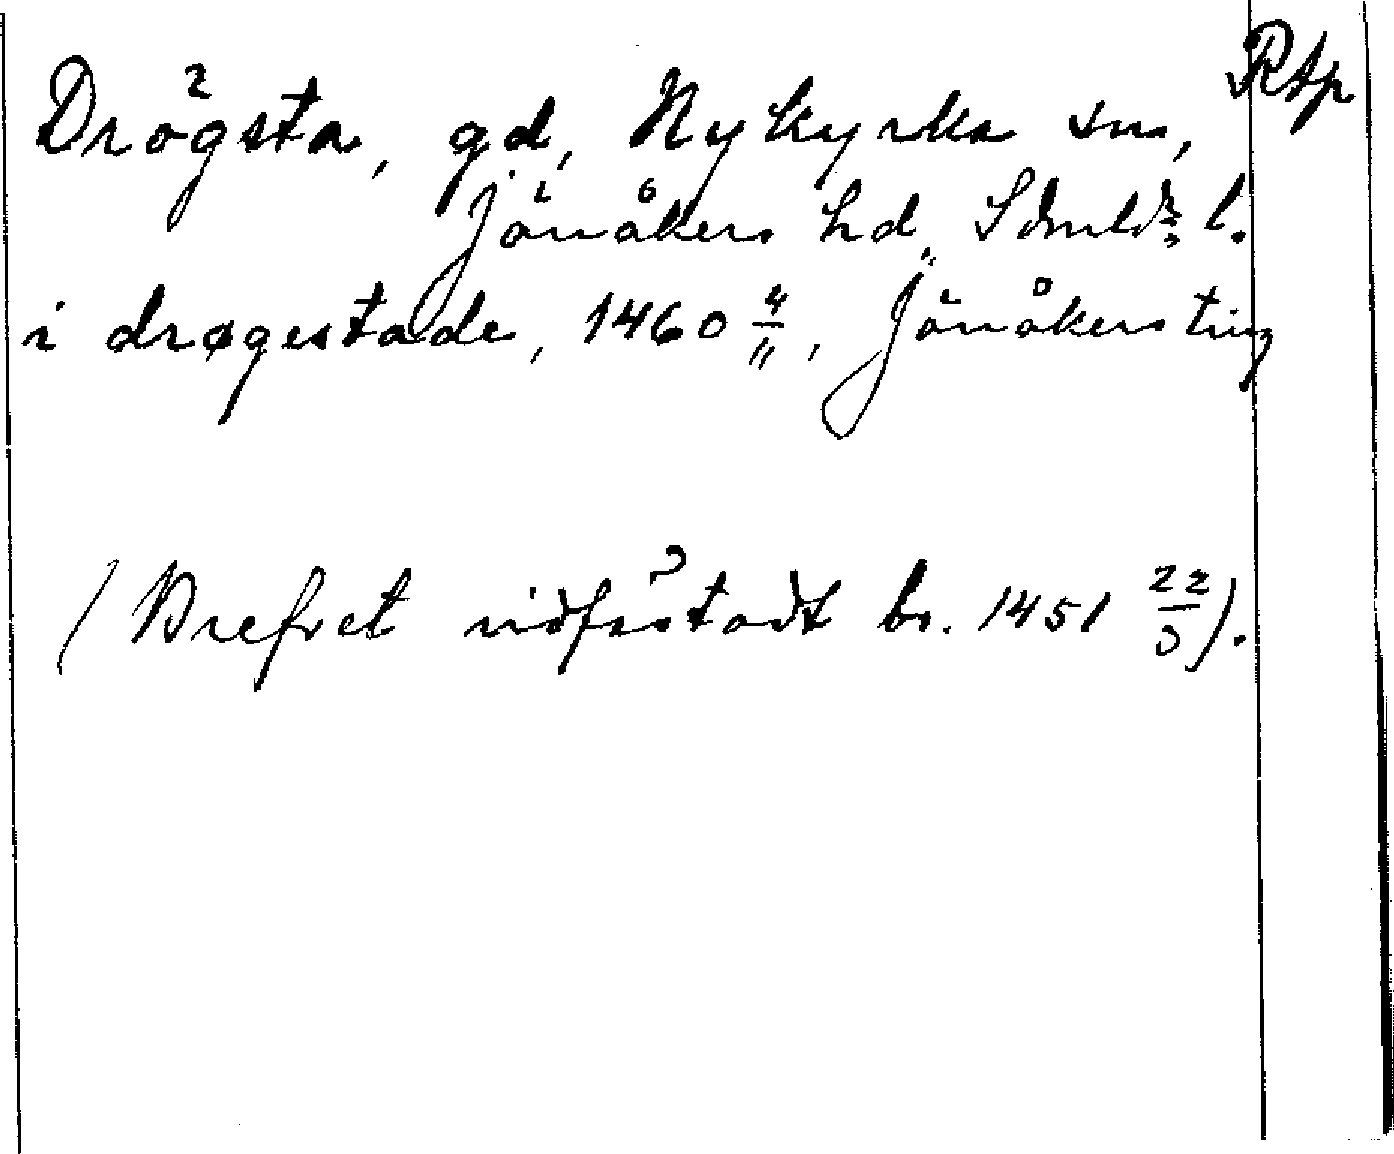 Rtp
Drögsta, gd, Nykyrka sn,
Jönåkers hd, Sdmlds l.
i drøgestade, 1460 4/11, Jönåkers ting
(Brefvet vidfästadt br. 1451 22/3).